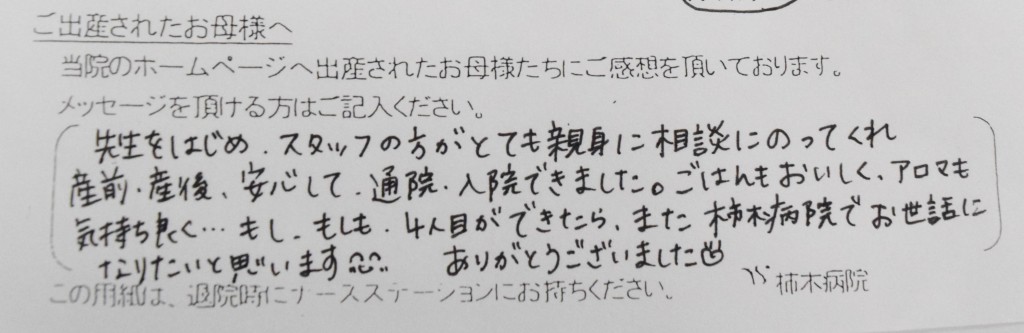 ご出産されたお母様へ
当院のホームページへ出産されたお母様たちにご感想を頂いております。
メッセージを頂ける方はご記入ください。
先生をはじめ、スタッフの方がとても親身に相談にのってくれ
産前・産後、安心して、通院・入院できました。ごはんもおいしく、アロマも
気持ち良く…もし、もしも、4人目ができたら、また柿木病院でお世話に
なりたいと思います ありがとうございました
この用紙は、退院時にナースステーションにお持ちください。
柿木病院